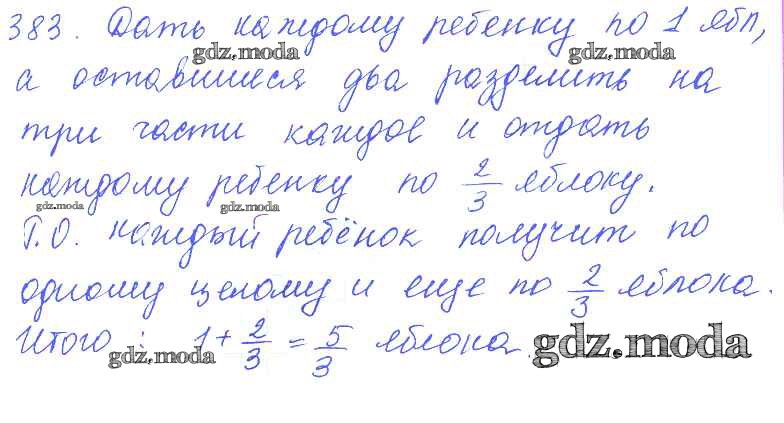 383. Дать каждому ребенку по 1 ябл,
gdz.moda gdz.moda
а оставшиеся два разделить на
три части каждое и отдать
каждому ребенку по 2/3 яблоку.
gdz.moda gdz.moda
Т.О. каждый ребёнок получит по
одному целому и еще по 2/3 яблока.
Итого: 1+2/3=5/3 яблока.
gdz.moda gdz.moda